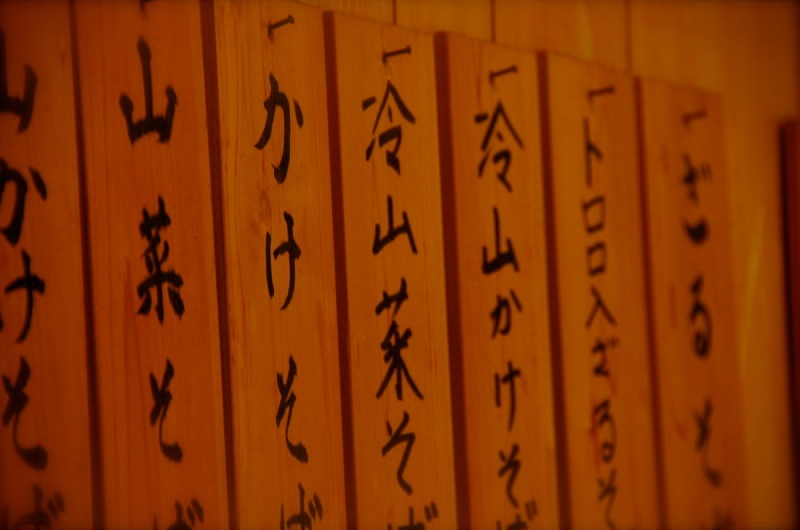 一ざるそ
一トロロ入ざるそ
一冷山かけそば
一冷山菜そば
一かけそば
山菜そば
山かけそば